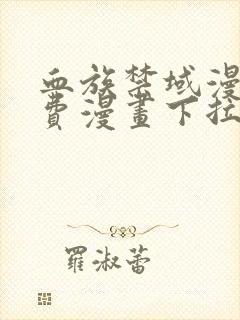 血族禁域漫
費漫畫下拉
羅淑蕾